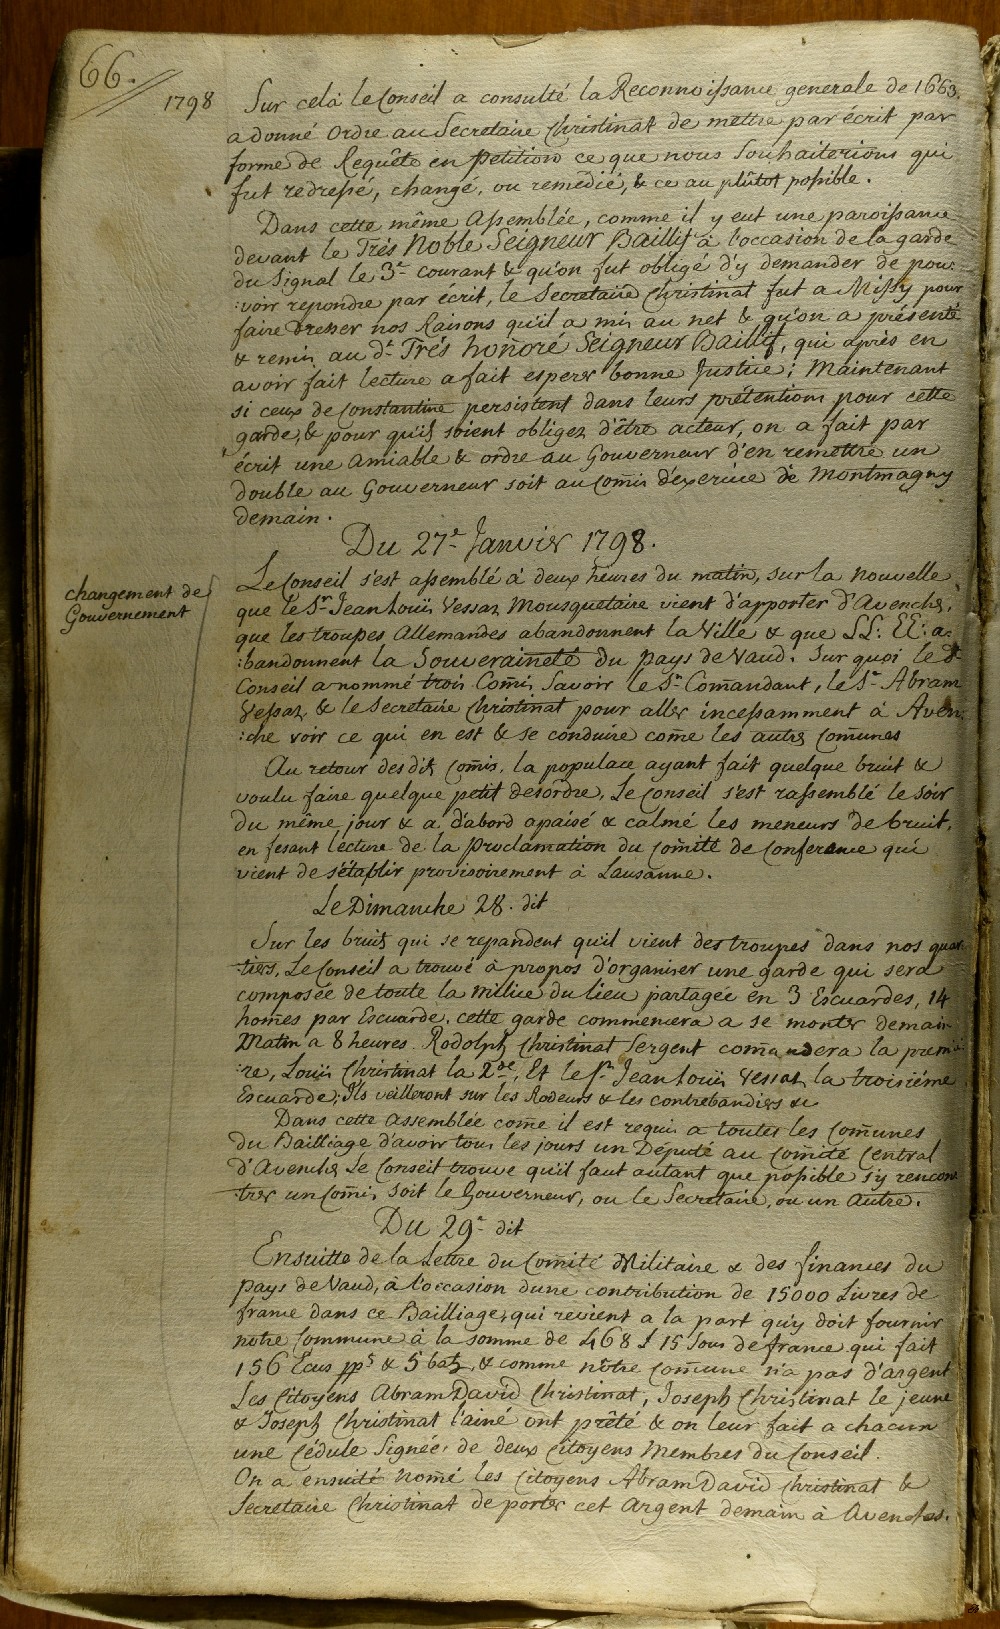 66.
1798
Sur cela le Conseil a consulté la Reconnoissance generale de 1663.
a donné ordre au Secretaire Christinat de mettre par écrit par
forme de Requête en petition ce que nous souhaiterions qui
fut redressé, changé, ou remedié, & ce au plûtot possible.
Dans cette même Assemblée, comme il y eut une paroissance
devant le Trés Noble Seigneur Baillif à l'occasion de la garde
du Signal le 3e courant & qu'on fut obligé d'y demander de pou:
:voir repondre par écrit, le Secretaire Christinat fut a Missy pour
faire dresser nos Raisons qu'il a mis au net & qu'on a présenté
& remis au dt Trés honnoré Seigneur Baillif, qui après en
avoir fait lecture a fait esperer bonne Justice; Maintenant
si ceux de Constantine persistent dans leurs prétentions pour cette
garde, & pour qu'ils soient obligez d'être acteur, on a fait par
écrit une amiable & ordre au Gouverneur d'en remettre un
double au Gouverneur soit au Com̄is d'exercice de Montmagny
demain.
Du 27e Janvier 1798.
changement de
Gouvernement
Le Conseil s'est assemblé à deux heures du matin, sur la nouvelle
que le Sr Jean Louïs Vessaz Mousquetaire vient d'apporter d'Avenches,
que les troupes Allemandes abandonnent la Ville & que LL: EE: a:
:bandonnent la Souveraineté du pays de Vaud. Sur quoi le dt
Conseil a nommé trois Com̄is, Savoir le Sr Com̄andant, le Sr Abram
Vessaz, & le Secretaire Christinat pour aller incessamment à Aven:
:che voir ce qui en est & se conduire com̄e les autres Com̄unes
Au retour des dits Com̄is, la populace ayant fait quelque bruit &
voulu faire quelque petit desordre, Le Conseil s'est rassemblé le soir
du même jour & a d'abord apaisé & calmé les meneurs de bruit,
en fesant lecture de la proclamation du Comité de Conference qui
vient de s'établir provisoirement à Lausanne.
Le Dimanche 28. dit
Sur les bruits qui se repandent qu'il vient des troupes dans nos quar:
:tiers, Le Conseil a trouvé à propos d'organiser une garde qui sera
composée de toute la millice du lieu partagée en 3 Escuardes, 14
hom̄es par Escuarde, cette garde commencera a se monter demain
Matin a 8 heures. Rodolph Christinat Sergent commandera la premie:
:re, Louïs Christinat la 2de, Et le Sr Jean Louïs Vessaz la troisiéme
Escuarde; Ils veilleront sur les Rodeurs & les contrebandiers &c
Dans cette assemblée com̄e il est requis a toutes les Com̄unes
du Bailliage d'avoir tous les jours un Député au Comité Central
d'Avenches Le Conseil trouve qu'il faut autant que possible s'y rencon:
:trer un Com̄is, soit le Gouverneur, ou le Secretaire, ou un Autre.
Du 29e dit
Ensuitte de la Lettre du Comité Militaire & des finances du
pays de Vaud, à l'occasion d'une contribution de 15000 Livres de
france dans ce Bailliage, qui revient a la part qu'y doit fournir
nôtre Commune à la somme de 468 £ 15 Sous de france qui fait
156 Ecus pps & 5 batz, & comme nôtre com̄une n'a pas d'argent
Les Citoyens Abram David Christinat, Joseph Christinat le jeune
& Joseph Christinat l'ainé ont prêté & on leur fait a chacun
une Cédule Signée de deux Citoyens Membres du Conseil.
On a ensuite nom̄é les Citoyens Abram David Christinat &
Secretaire Christinat de porter cet Argent demain à Avenches.